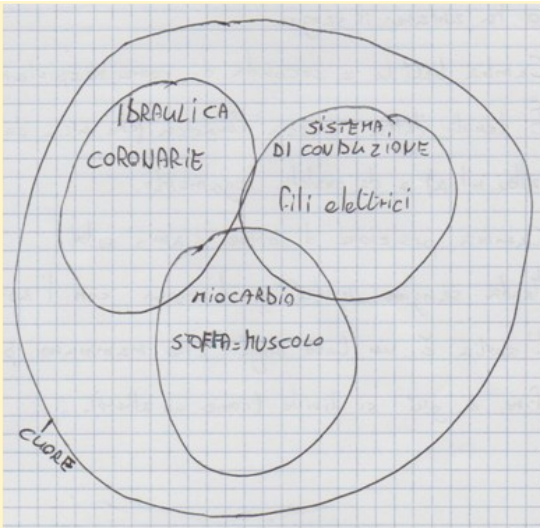 IDRAULICA
CORONARIE
SISTEMA
DI CONDUZIONE
fili elettrici
MIOCARDIO
STOFFA=MUSCOLO
CUORE